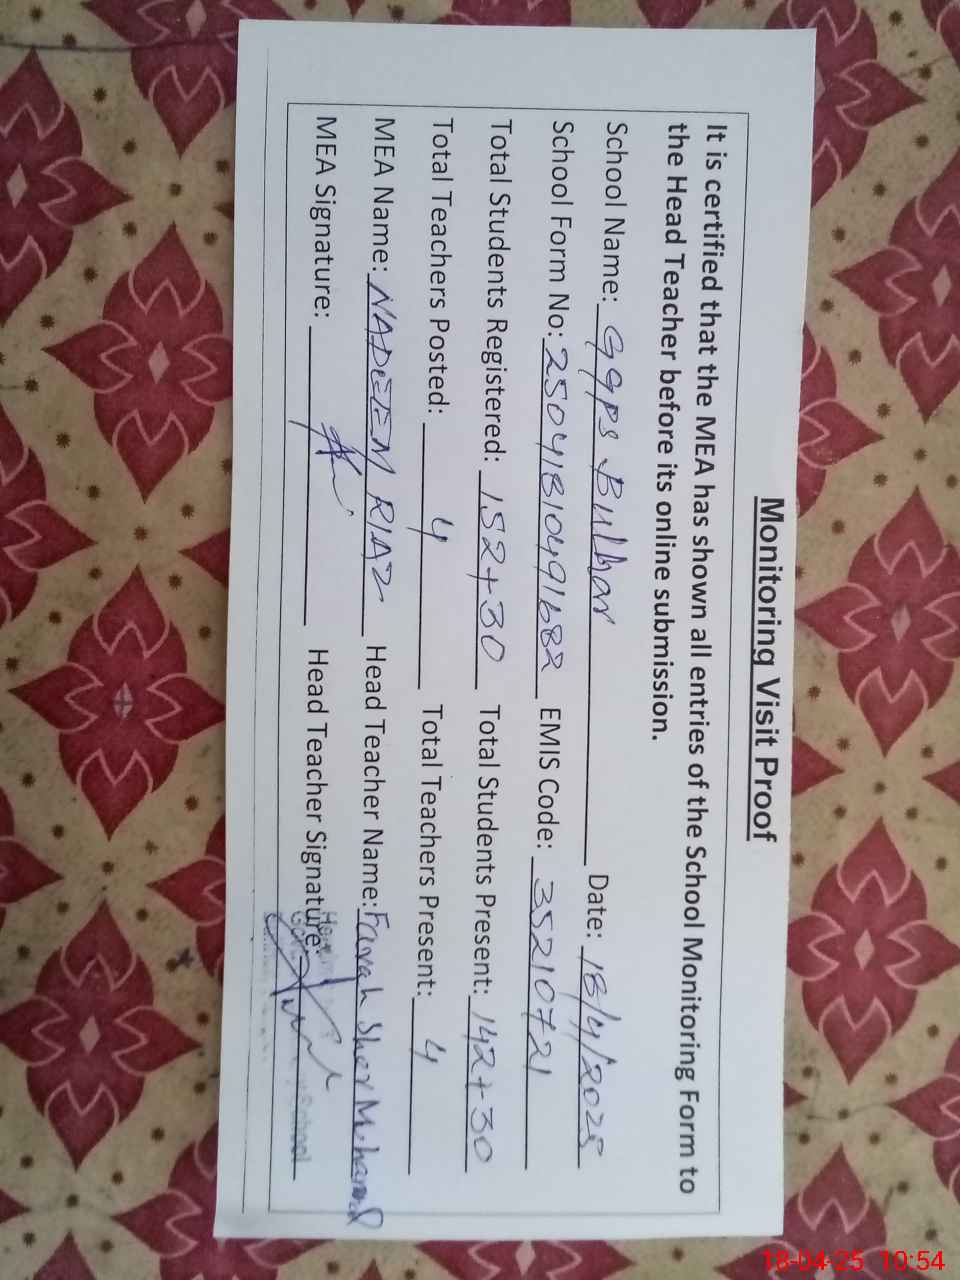 Monitoring Visit Proof
It is certified that the MEA has shown all entries of the School Monitoring Form to
the Head Teacher before its online submission.
School Name: GGPS Bulhar Date: 18/4/2025
School Form No: 25041810491682 EMIS Code: 35210721
Total Students Registered: 152+30 Total Students Present: 142+30
Total Teachers Posted: 4 Total Teachers Present: 4
MEA Name: NADEEM RIAZ Head Teacher Name: Farah Sher Muhammad
MEA Signature: Head Teacher Signature:
School
18-04-25 10:54